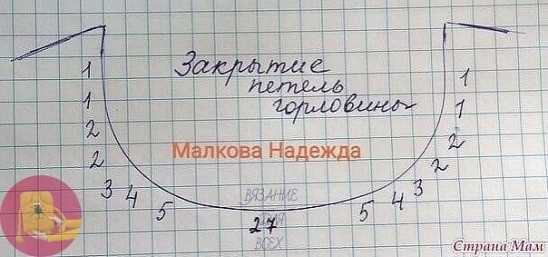 Закрытие
петель
горловины
Малкова Надежда
1 1
1 1
2 2
2 2
3 3
4 4
5 5
ВЯЗАНИЕ
ДЛЯ
27
ВСЕХ
Страна Мам